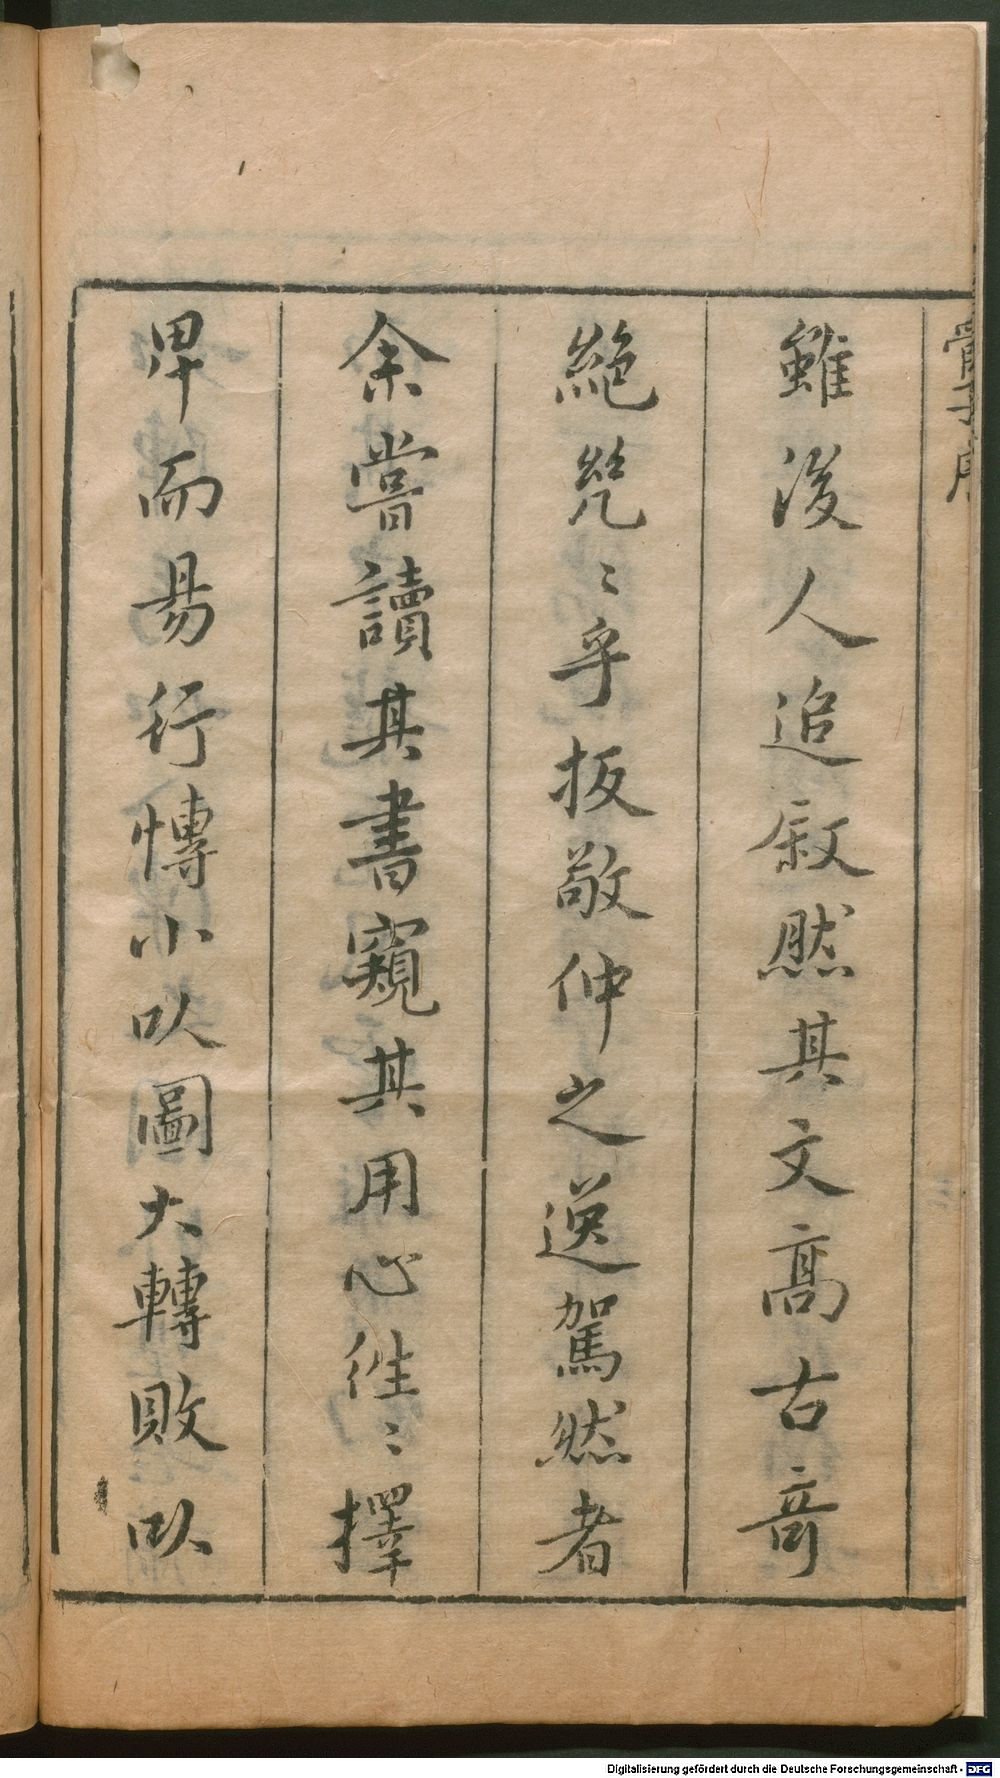 管子序
雖後人追敘然其文高古竒
絶㷀〻乎扳敬仲之逸駕然者
余嘗讀其書窺其用心徃〻擇
卑而昜行慱小以圖大轉敗以
Digitalisierung gefördert durch die Deutsche Forschungsgemeinschaft - DFG